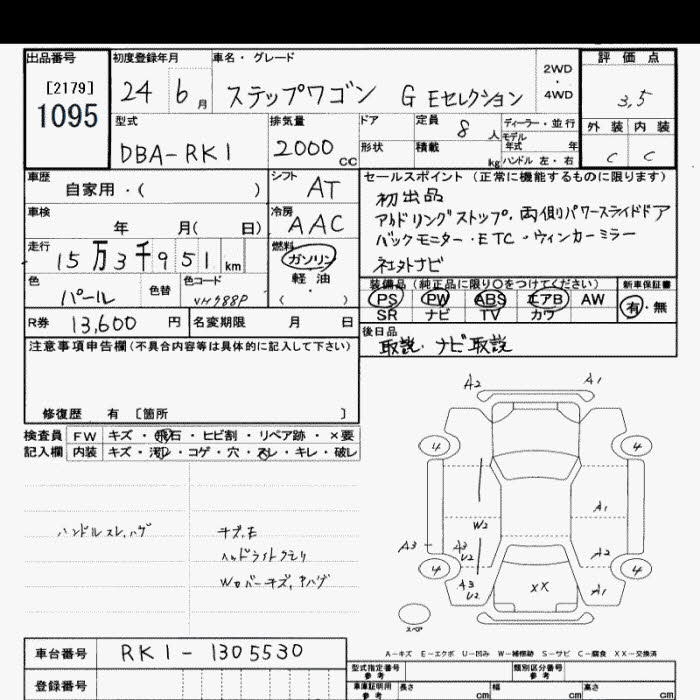 出品番号 初度登録年月 車名・グレード 評価点
[2179]
1095
24 6月 ステップワゴン G Eセレクション
2WD
・
4WD
3.5
外装 内装
C C
型式 排気量 ドア 定員 8人 ディーラー・並行
モデル
年式 年
DBA-RK1 2000cc 形状 積載 kg ハンドル 左・右
車歴 シフト セールスポイント (正常に機能するものに限ります)
自家用・( ) AT
初出品
アイドリングストップ・両側パワースライドドア
バックモニター・ETC・ウィンカーミラー
社外ナビ
車検 冷房
年 月( 日) AAC
走行 燃料
15万3千951km ガソリン
軽油
( )
色 色替 色コード
パール NH788P
装備品 (純正品に限り○をつけてください) 新車保証書
PS PW ABS エアB AW 有・無
SR ナビ TV カワ
R券 13,600円 名変期限 月 日
後日品
取説・ナビ取説
注意事項申告欄 (不具合内容等は具体的に記入して下さい)
修復歴 有 〔箇所 〕
検査員 FW キズ・飛石・ヒビ割・リペア跡・×要
記入欄 内装 キズ・汚れ・コゲ・穴・スレ・キレ・破レ
ハンドルスレ、ハゲ
キズ、E
ヘッドライトクモリ
A2 A1
4 4
A1
W2
A3 A3 U2 A2
4 4
A3 U2 XX A1
スペア
A-キズ E-エクボ U-凹み W-補修跡 S-サビ C-腐食 XX-交換済
車台番号 RK1-1305530
登録番号
型式指定番号
参考
類別区分番号
参考
車庫証明用
参考
長さ cm 幅 cm 高さ cm